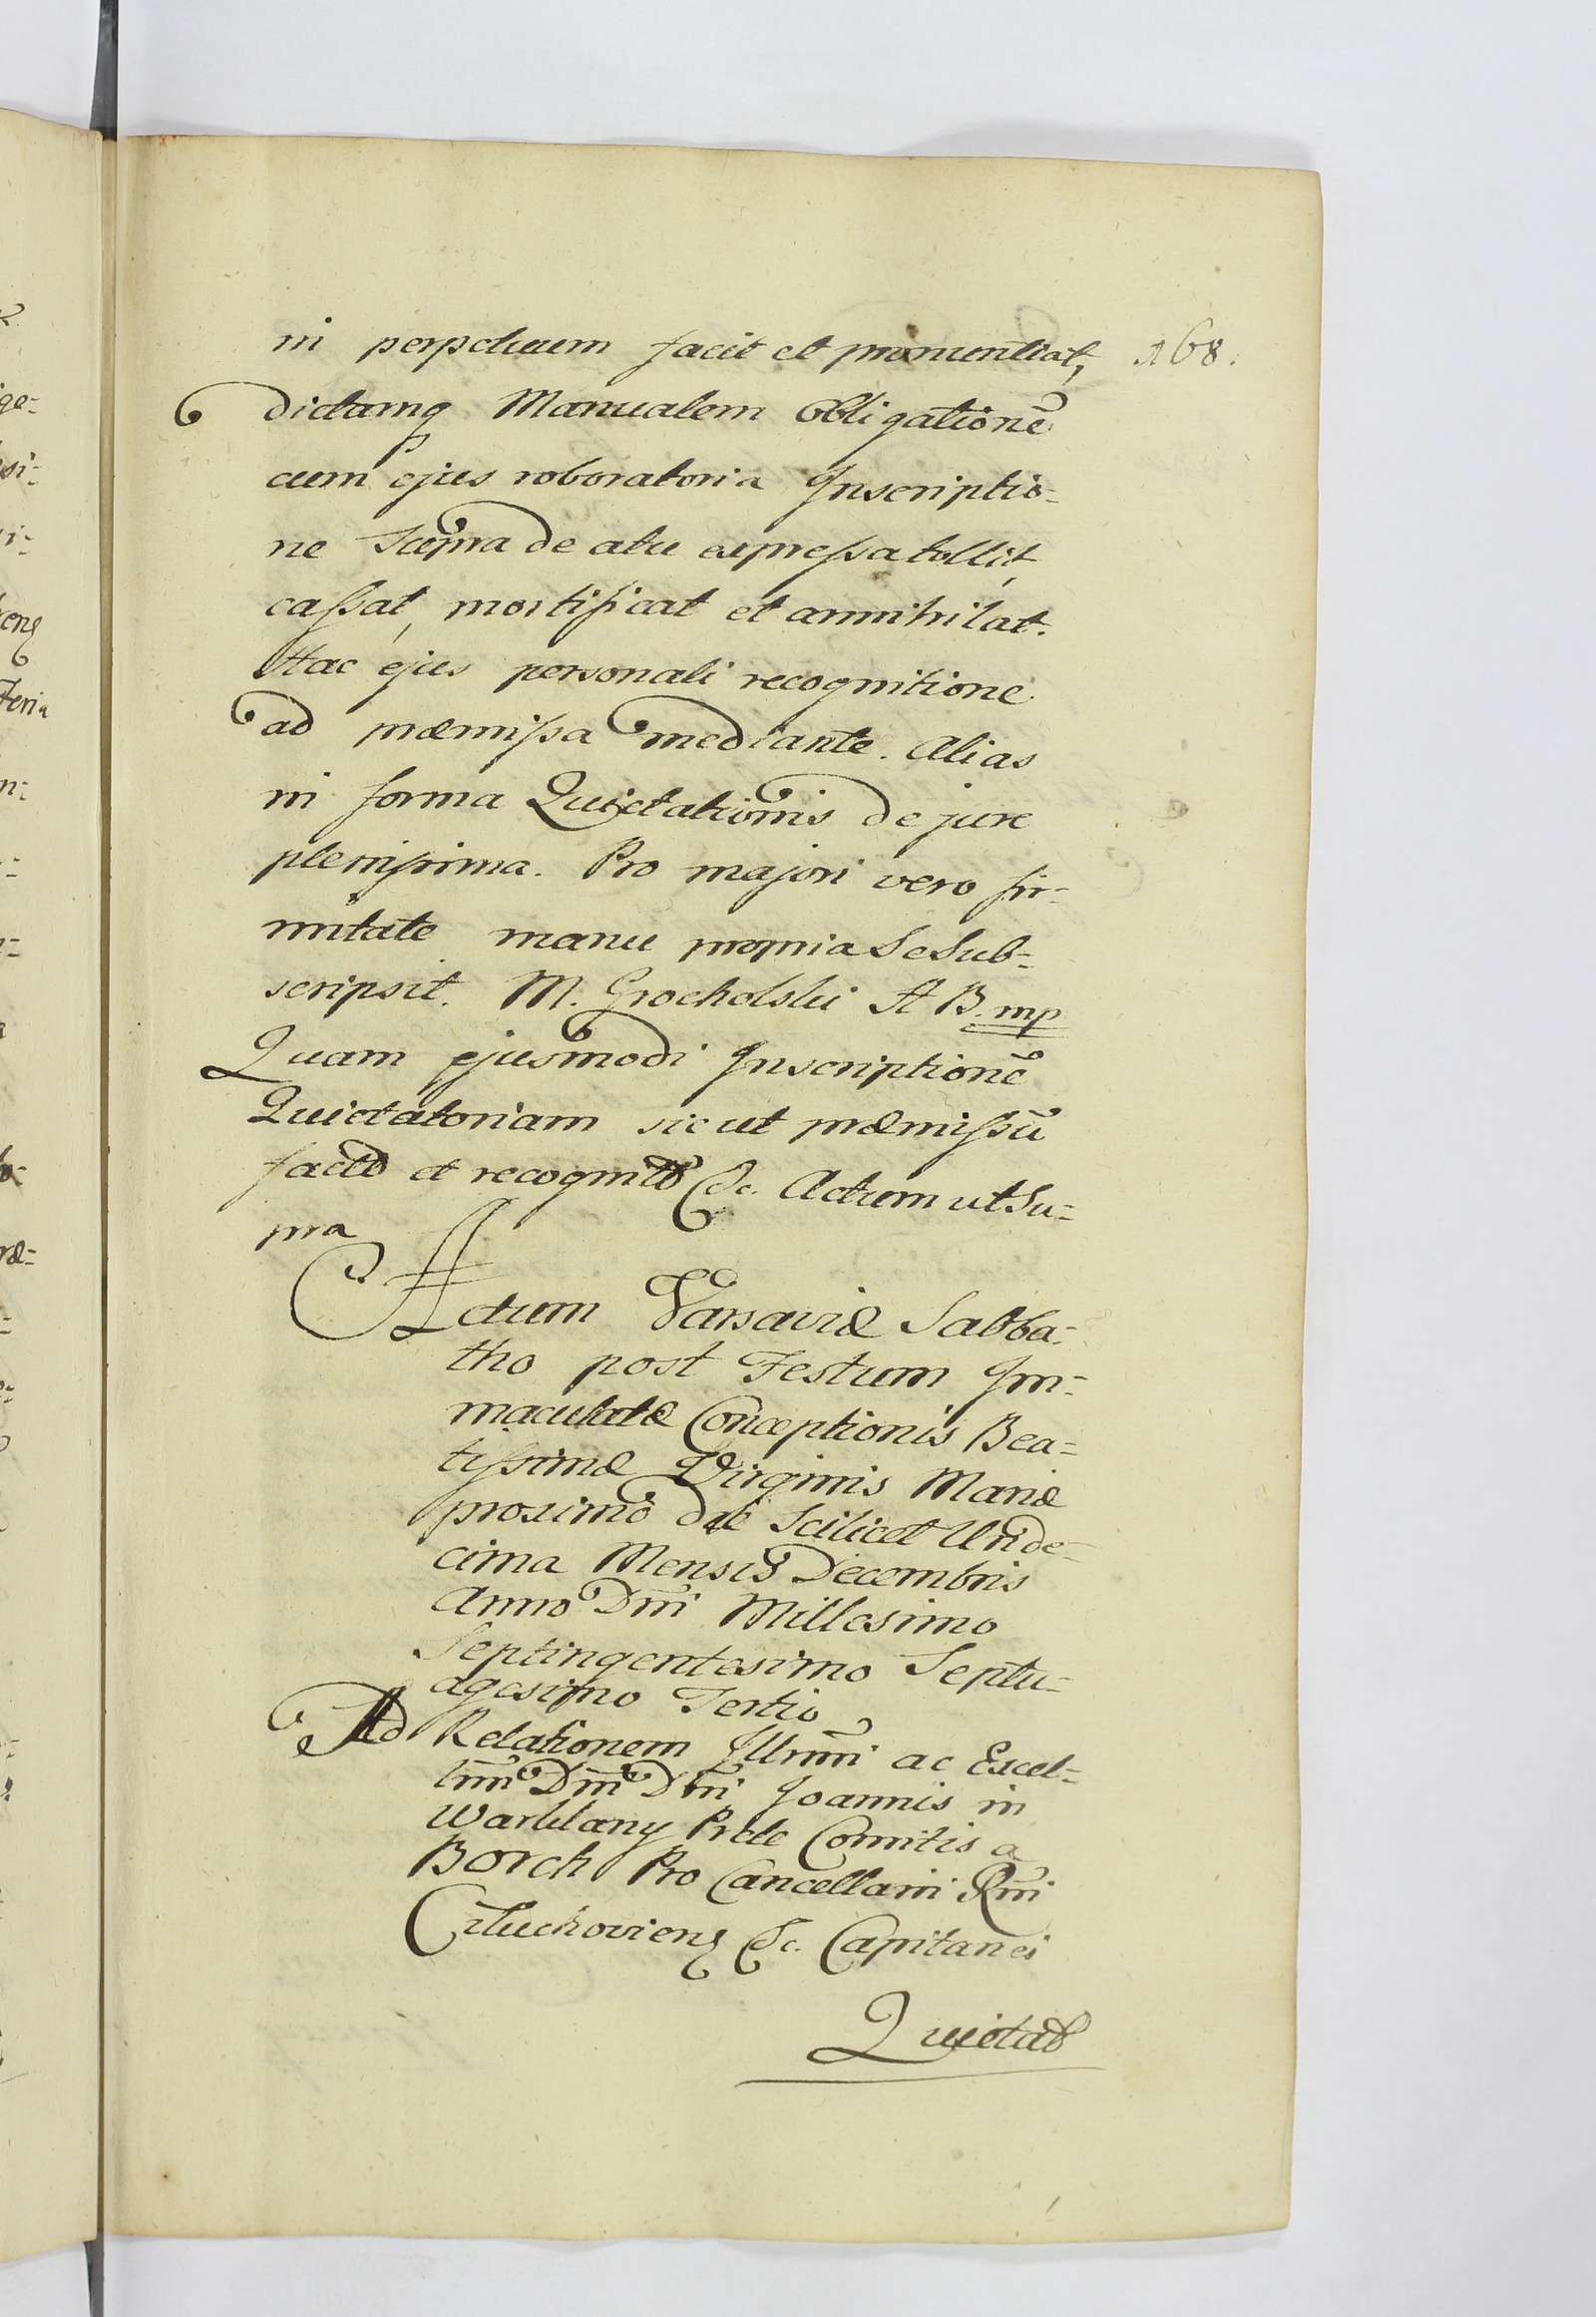 168.
in perpetuum facit et pronuntiat,
dictamq Manualem Obligationē
cum ejus roboratoria Inscriptio=
ne Supra de actu expressa tollit,
cassat, mortificat et annihilat.
Hac ejus personali recognitione
ad præmissa mediante. Alias
in forma Quietationis de jure
plenissima. Pro majori vero fir=
mitate manu propria se sub=
scripsit. M. Grocholski St B. mp
Quam ejusmodi Inscriptionē
Quietatoriam sicut præmissū
facto et recognito &c. Actum ut Su=
pra
Actum Varsaviæ Sabba=
tho post Festum Im=
maculatæ Conceptionis Bea=
tissimæ Virginis Mariæ
proximo die Scilicet Unde=
cima Mensis Decembris
Anno Dm̄i Millesimo
Septingentesimo Septu=
agesimo Tertio
Ad Relationem Jllrm̄i ac Excel=
lm̄i Dm̄i Dm̄i Joannis in
Warklany Prele Comitis a
Borch Pro Cancellarii Rm̄i
Cżluchoviens &c. Capitanei
Quietat